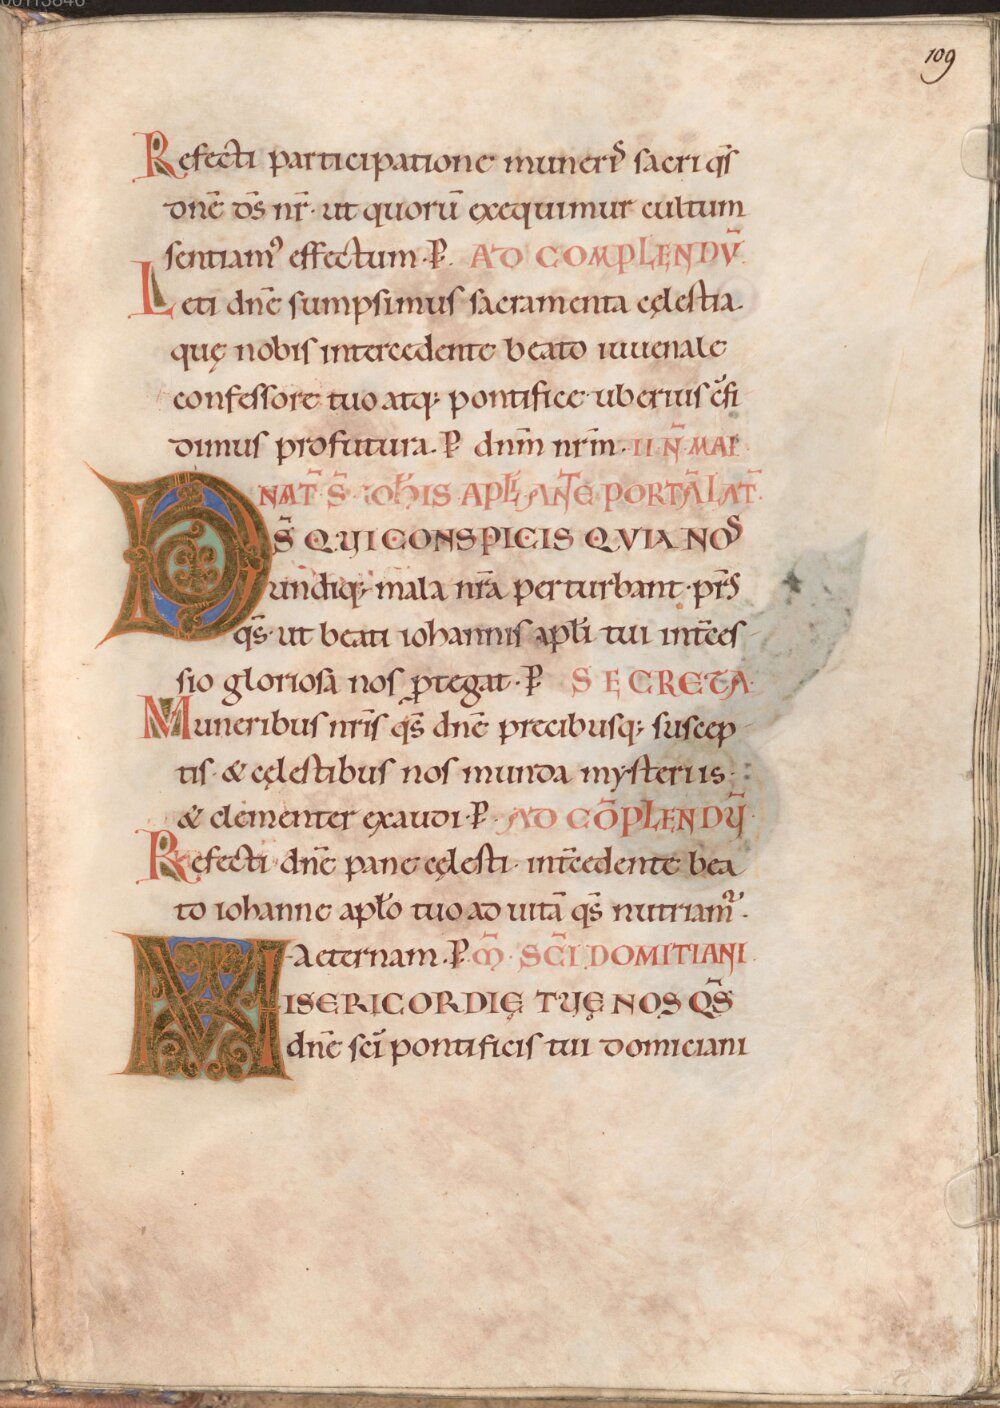 109
Refecti participatione muneris sacri qs̄
dnē ds̄ nr̄· ut quorū exequimur cultum
sentiam᾽ effectum·P̄· AD COMPLENDṼ·
Leti dnē sumpsimus sacramenta cęlestia·
quę nobis intercedente beato iuuenale
confessore tuo atq; pontifice uberius c̄fi
dimus profutura·P̄ dnm̄ nrm̄· II Ñ MAI·
NAT̄ S̄ IOH̄IS APLI ANT̄E PORTĀ LAT̄·
DS̄ QUI CONSPICIS QVIA NOS
undiq; mala nrā perturbant· pr̄s
qs̄· ut beati iohannis apl̄i tui int̄ces
sio gloriosā nos ꝓtegat·P̄ SECRETA·
Muneribus nrīs qs̄ dnē precibusq; suscep
tis· & cęlestibus nos munda mysteriis·
& clementer exaudi·P̄· AD CŌPLENDŪ
Refecti dnē pane cęlesti· int̄cedente bea
to iohanne apl̄o tuo ad uitā qs̄ nutriam᾽·
Aeternam·P̄· M̄· SC̄I DOMITIANI
MISERICORDIĘ TUĘ NOS QS̄
dnē scī pontificis tui domiciani